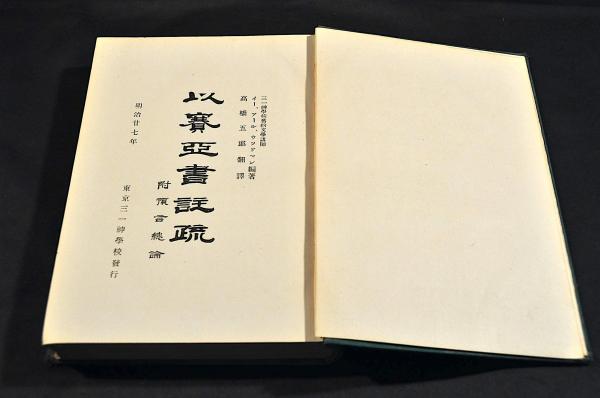 三一神學校舊約文學講師
イー、アール、ウッドマン編著
高橋五郎翻譯
以賽亞書註疏
附預言總論
明治廿七年
東京三一神學校發行